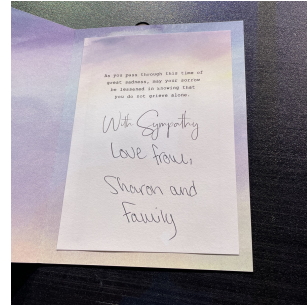 As you pass through this time of
great sadness, may your sorrow
be lessened in knowing that
you do not grieve alone.
With Sympathy
Love from,
Sharon and
Family